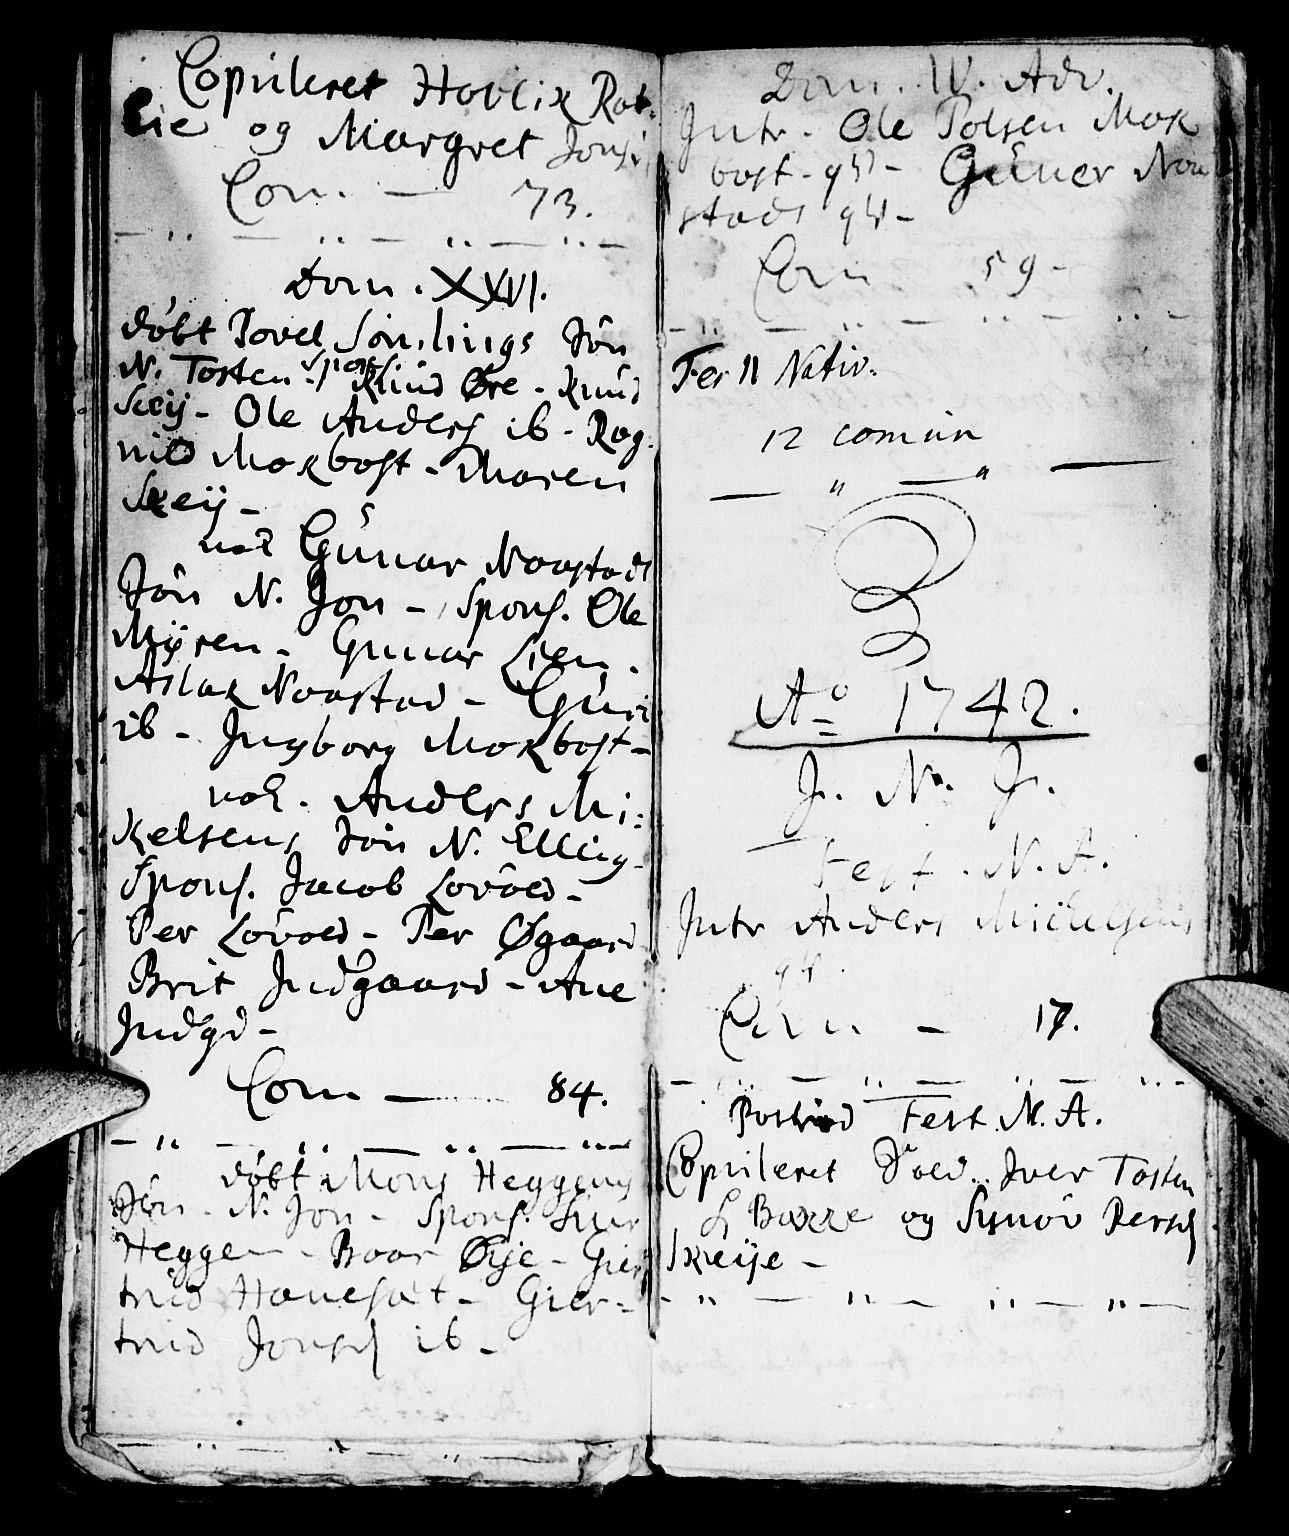 Copuleret Havlix Rot:
lie og Margret Jons
Com. — 73.
Dom. XXVI.
døbt Povel Sønslings Søn
N. Tosten. spons. Knud Øre - Knud
Sceij - Ole Anders ib - Rag
nild Moxbost - Maren
Skeij -
nok Gunar Noostads
Søn N. Jon - Spons. Ole
Mÿren - Gunar Lien.
Aslak Noostad - Guri
ib - Jngborg Moxbost -
nok. Anders Mi:
kelsens Søn N. Elling -
Spons. Jacob Lovoed -
Per Lovoed - Per Øgaard
Brit Jndgaard - Ane
Jndgd -
Com — 84.
døbt Mons Heggens
Søn - N. Jon - Spons. Siur
Heggen - Boar Øije - Gier
trud Hanesat - Gier-
trud Jonsd ib -
Dom. IV. Adv.
Jntr - Ole Polsen Mox
bost - qv - Guner Noo
stads qv -
Com 59 -
Fer II Nativ.
12 comun
Ao 1742.
J. N. J.
Fest. N. A.
Jntr Anders Michelsens
qv.
Com — 17.
Postrid Fest. N. A.
Copuleret Soed. Jver Tosten
S Boxxe og Synov Persd
Skeije -